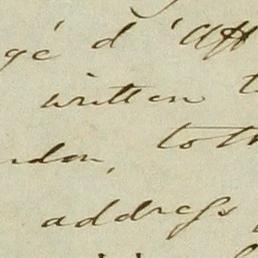 gé d'Aff
written t
ndon, to th
address